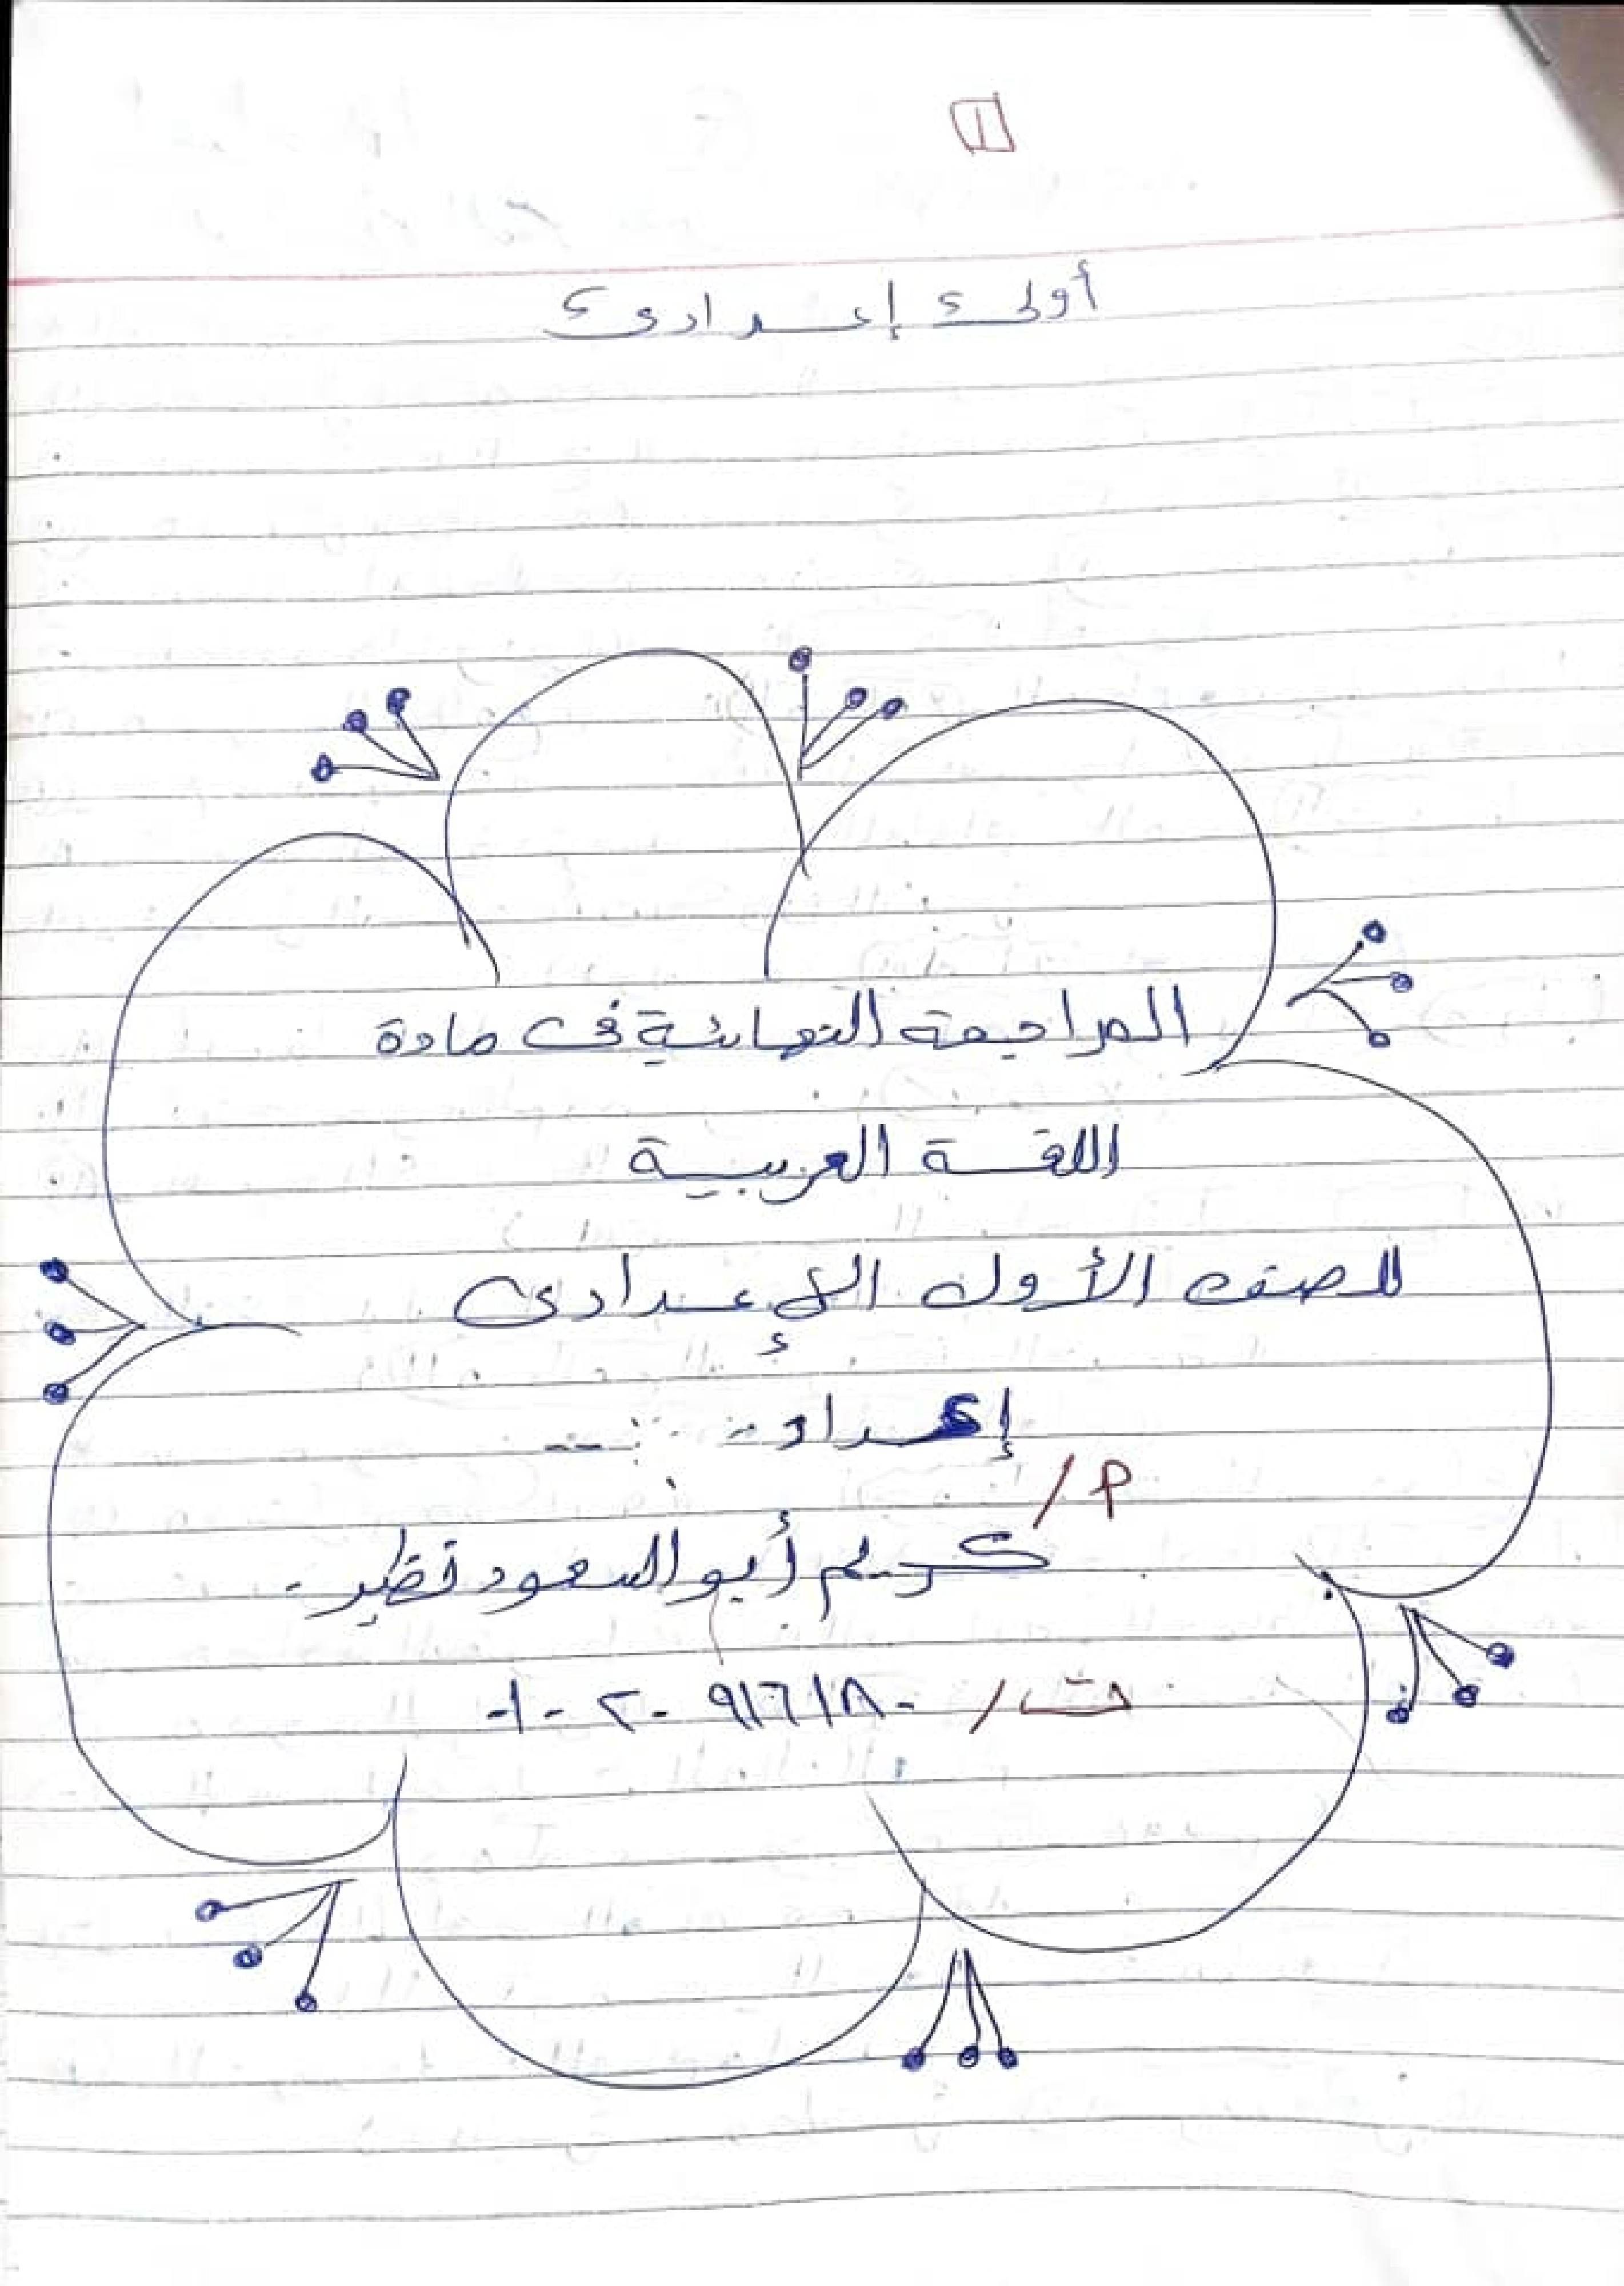 ١
أولى إعدادى
المراجعة النهائية فى مادة
اللغة العربية
للصف الأول الإعدادى
إعداد
م/
كريم أبو السعود قطير
ت/ ٠١٠٢٠٩١٦١٨٠